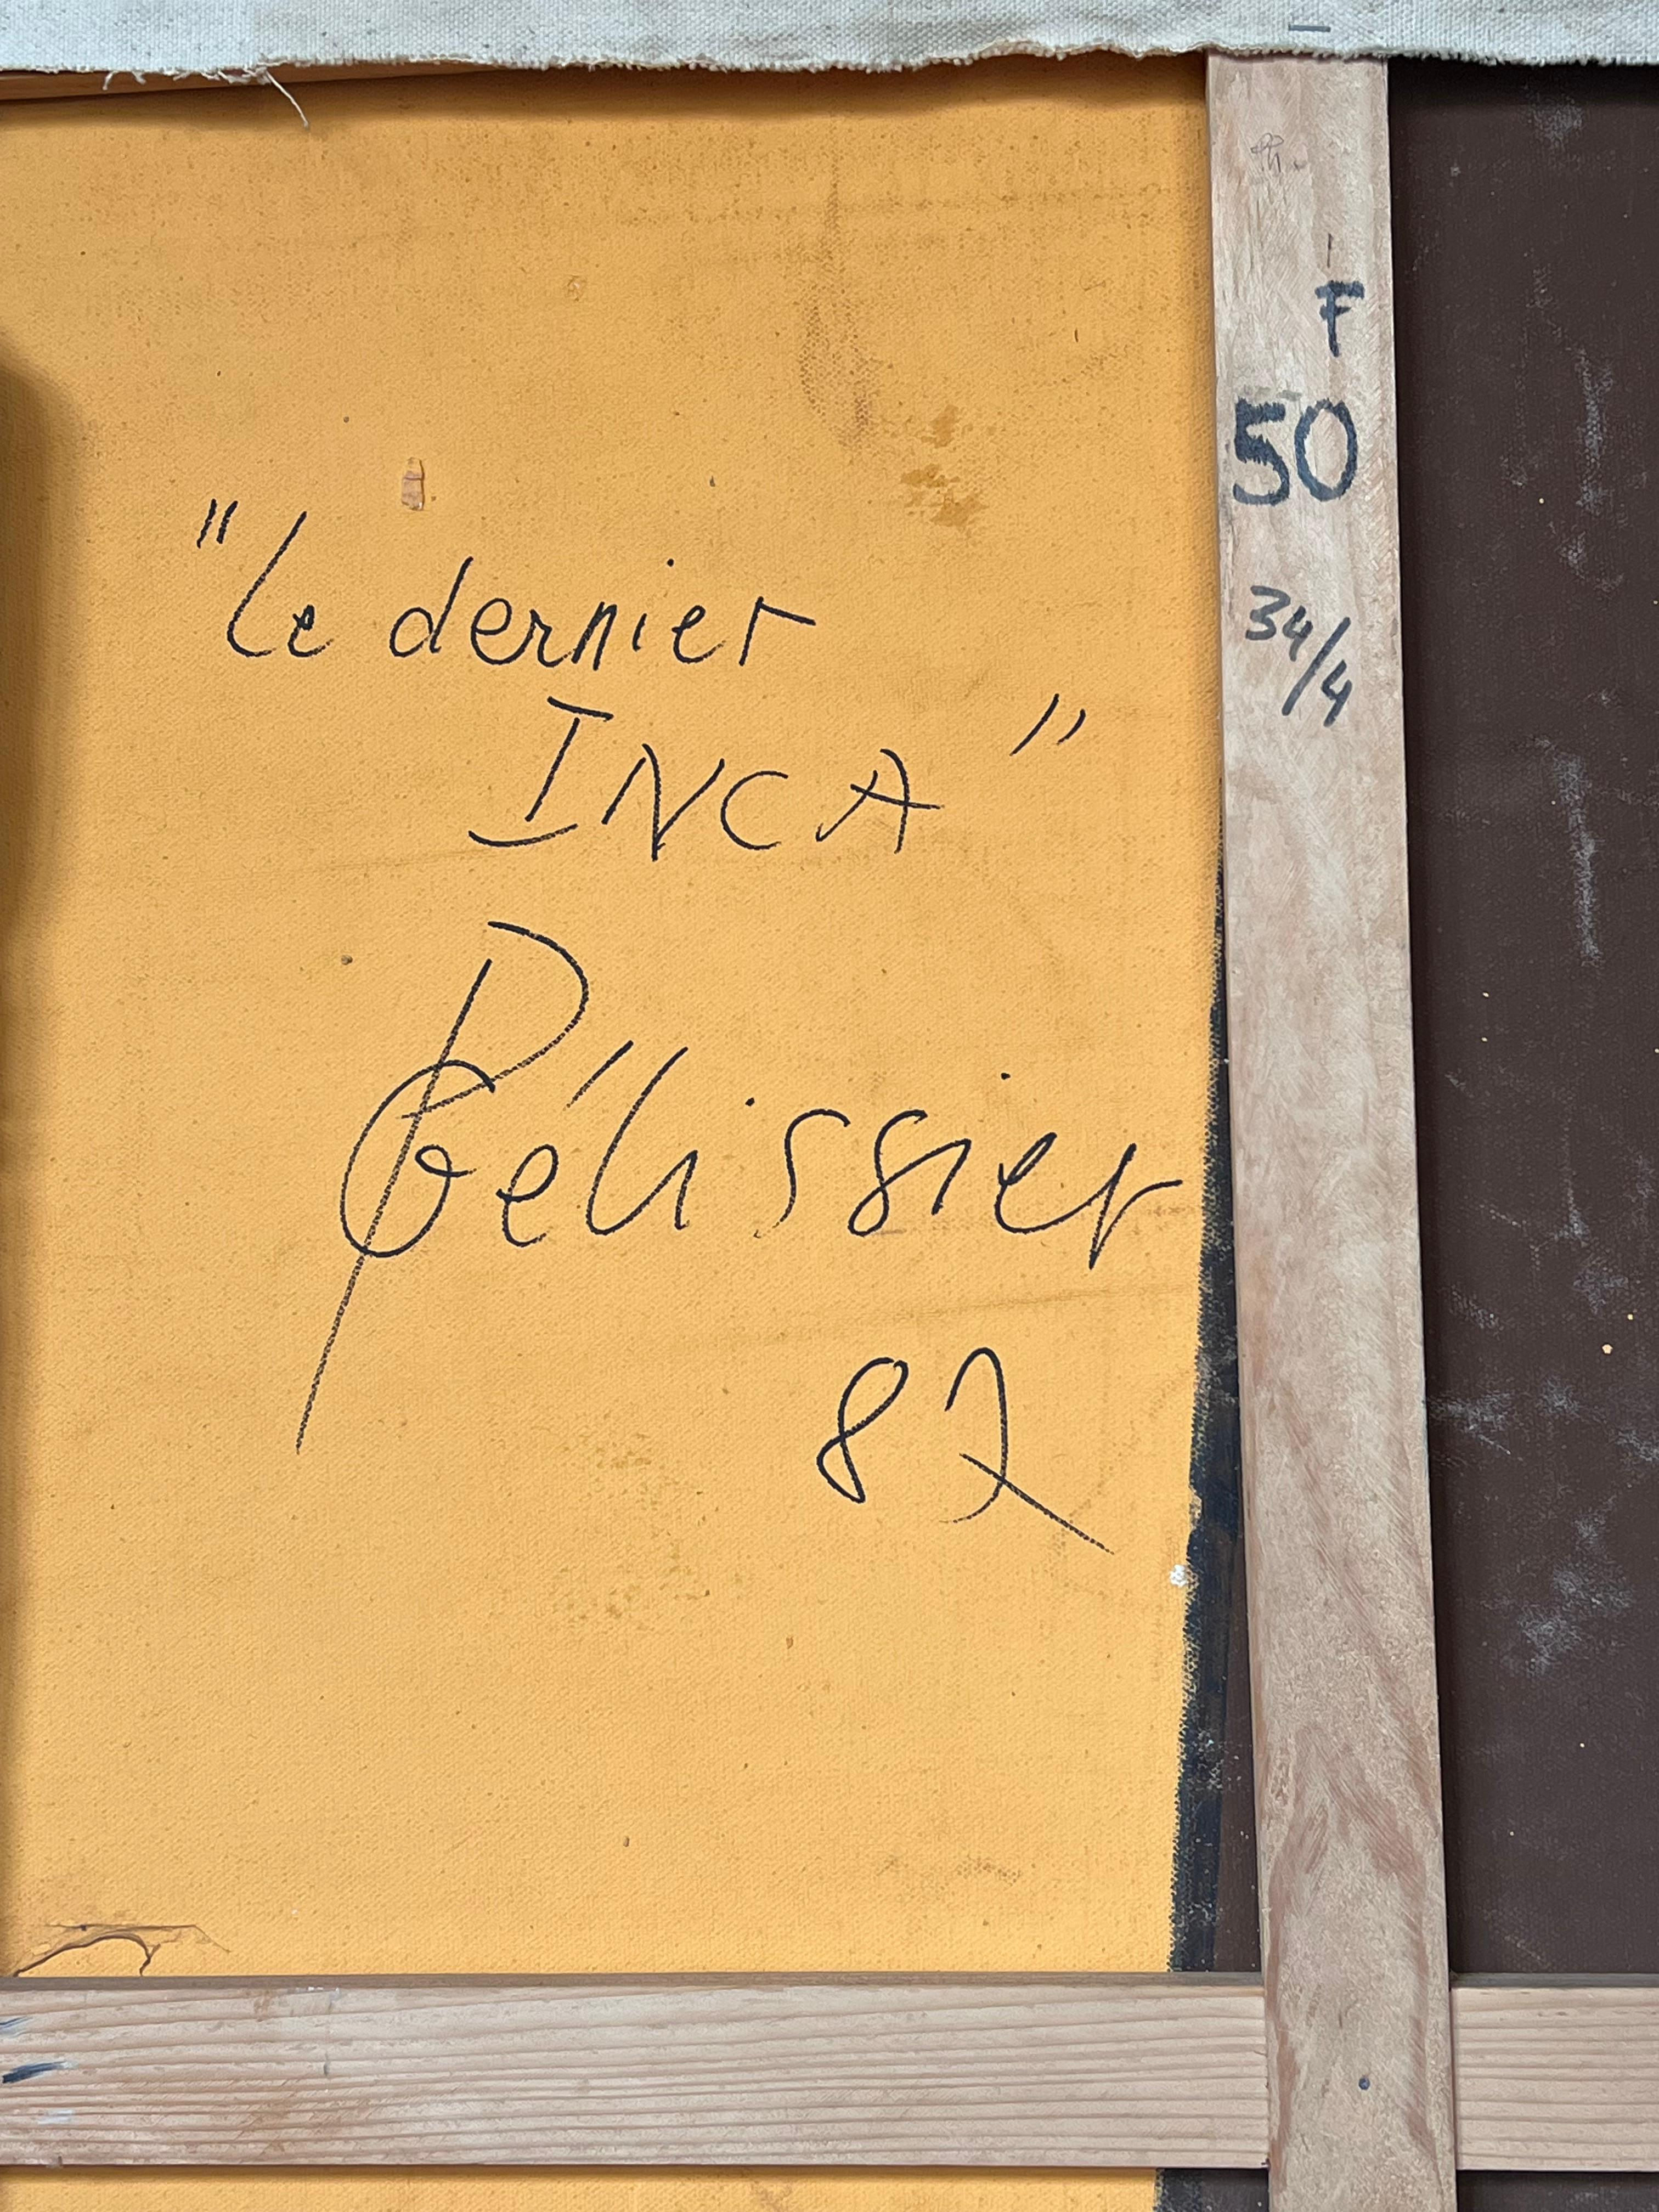 "Le dernier
INCA"
Pélissier
87
F
50
34/4